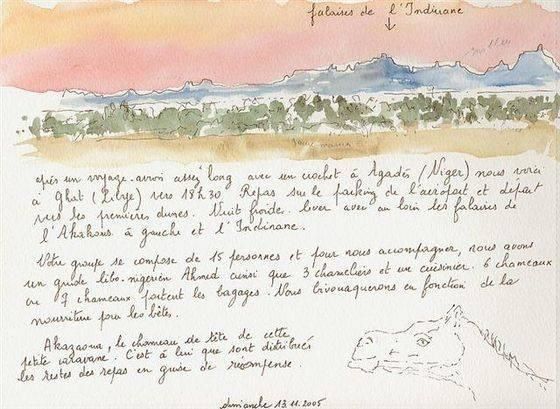 falaises de l'Indinane
après un voyage avion assez long avec un crochet à Agadès (Niger) nous voici
à Ghat (Libye) vers 18h30 Repas sur le parking de l'aéroport et départ
vers les premières dunes. Nuit froide. Lever avec au loin les falaises de
l'Akakous à gauche et l'Indinane.
Votre groupe se compose de 15 personnes et pour nous accompagner, nous avons
un guide libo-nigérien Ahmed ainsi que 3 chameliers et un cuisinier. 6 chameaux
ou 7 chameaux portent les bagages. Nous bivouaquerons en fonction de la
nourriture pour les bêtes.
Akazaoua, le chameau de tête de cette
petite caravane. C'est à lui que sont distribués
les restes des repas en guise de récompense.
dimanche 13.11.2005